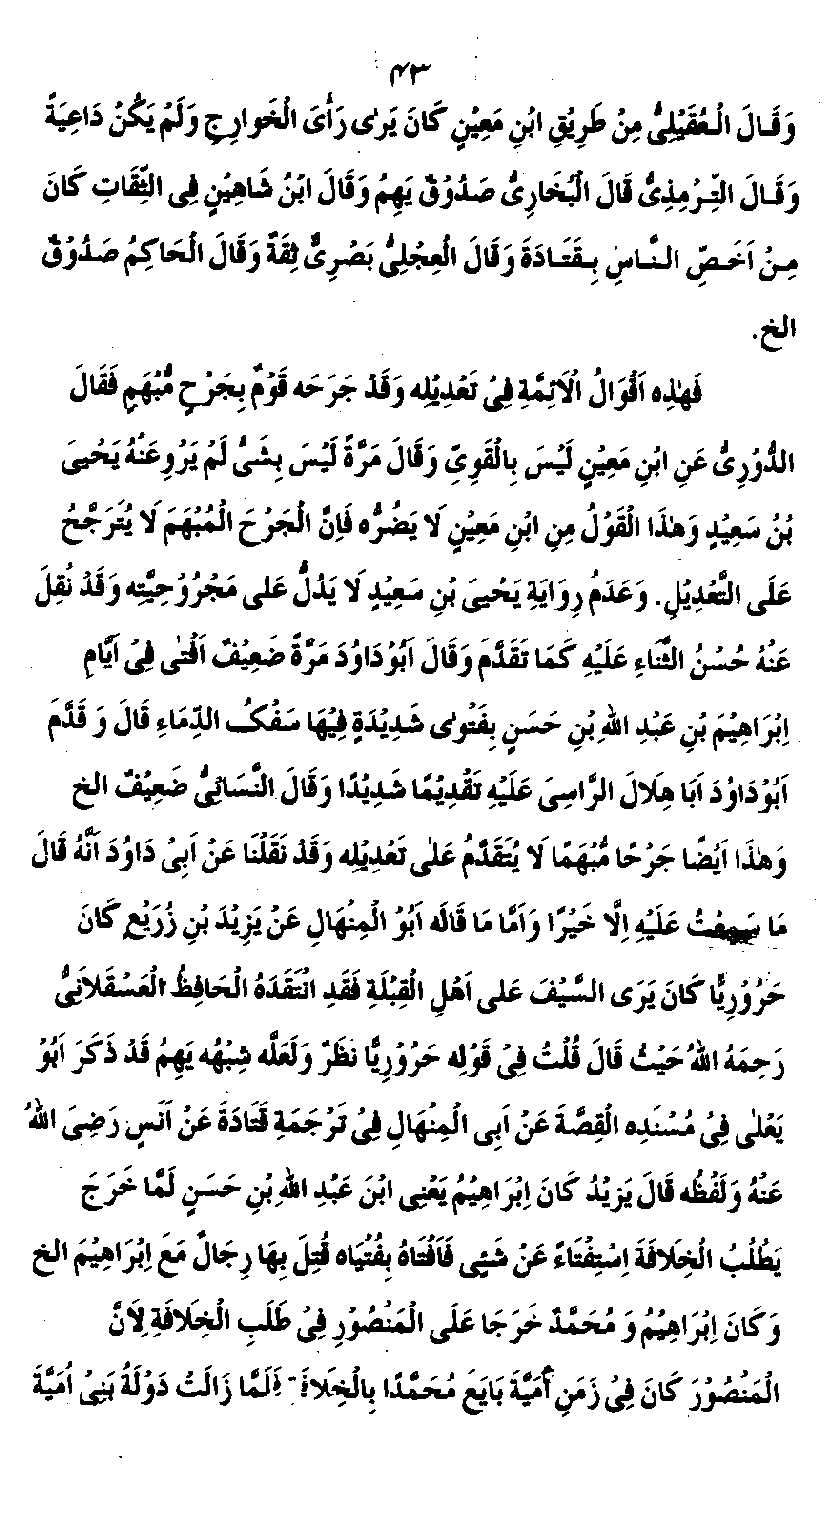 ۴۳
وَقَالَ الْعُقَيْلِيُّ مِنْ طَرِيْقِ ابْنِ مَعِيْنٍ كَانَ يَرٰى رَأْىَ الْخَوارِجِ وَلَمْ يَكُنْ دَاعِيَةً
وَقَالَ التِّرْمِذِيُّ قَالَ الْبُخَارِىُّ صَدُوْقٌ يَهِمُ وَقَالَ ابْنُ شَاهِيْنٍ فِى الثِّقَاتِ كَانَ
مِنْ اَخَصِّ النَّاسِ بِقَتَادَةَ وَقَالَ الْعِجْلِىُّ بَصْرِىٌّ ثِقَةٌ وَقَالَ الْحَاكِمُ صَدُوْقٌ
الخ.
فَهٰذِه اَقْوَالُ الْاَئِمَّةِ فِىْ تَعْدِيْلِه وَقَدْ جَرَحَه قَوْمٌ بِجَرْحٍ مُّبْهَمٍ فَقَالَ
الدُّوْرِىُّ عَنِ ابْنِ مَعِيْنٍ لَيْسَ بِالْقَوِىِّ وَقَالَ مَرَّةً لَيْسَ بِشَىْءٍ لَمْ يَرْوِ عَنْهُ يَحْيىَ
بْنُ سَعِيْدٍ وَهٰذَا الْقَوْلُ مِنِ ابْنِ مَعِيْنٍ لَا يَضُرُّه فَاِنَّ الْجَرْحَ الْمُبْهَمَ لَا يُتَرَجَّحُ
عَلَى التَّعْدِيْلِ. وَعَدَمُ رِوَايَةِ يَحْيىَ بْنِ سَعِيْدٍ لَا يَدُلُّ عَلى مَجْرُوْحِيَّتِه وَقَدْ نُقِلَ
عَنْهُ حُسْنُ الثَّنَاءِ عَلَيْهِ كَمَا تَقَدَّمَ وَقَالَ اَبُوْدَاوُدَ مَرَّةً ضَعِيْفٌ اَفْتٰى فِىْ اَيَّامِ
اِبْرَاهِيْمَ بْنِ عَبْدِ اللهِ بْنِ حَسَنٍ بِفَتْوٰى شَدِيْدَةٍ فِيْهَا سَفْكُ الدِّمَاءِ قَالَ وَ قَدَّمَ
اَبُوْدَاوُدَ اَبَا هِلَالَ الرَّاسِىَ عَلَيْهِ تَقْدِيْمًا شَدِيْدًا وَقَالَ النَّسَائِىُّ ضَعِيْفٌ الخ
وَهٰذَا اَيْضًا جَرْحًا مُّبْهَمًا لَا يُتَقَدَّمُ عَلٰى تَعْدِيْلِه وَقَدْ نَقَلْنَا عَنْ اَبِىْ دَاوُدَ اَنَّهُ قَالَ
مَا سَمِعْتُ عَلَيْهِ اِلَّا خَيْرًا وَاَمَّا مَا قَالَه اَبُوْ الْمِنْهَالِ عَنْ يَزِيْدَ بْنِ زُرَيْعٍ كَانَ
حَرُوْرِيًّا كَانَ يَرَى السَّيْفَ عَلى اَهْلِ الْقِبْلَةِ فَقَدِ انْتَقَدَهُ الْحَافِظُ الْعَسْقَلَانِىُّ
رَحِمَهُ اللهُ حَيْثُ قَالَ قُلْتُ فِىْ قَوْلِه حَرُوْرِيًّا نَظَرٌ وَلَعَلَّه شِبْهُه يَهِمُ قَدْ ذَكَرَ اَبُوْ
يَعْلٰى فِىْ مُسْنَدِه الْقِصَّةَ عَنْ اَبِى الْمِنْهَالِ فِىْ تَرْجَمَةِ قَتَادَةَ عَنْ اَنَسٍ رَضِىَ اللهُ
عَنْهُ وَلَفْظُه قَالَ يَزِيْدُ كَانَ اِبْرَاهِيْمُ يَعْنِى ابْنَ عَبْدِ اللهِ بْنِ حَسَنٍ لَمَّا خَرَجَ
يَطْلُبُ الْخِلَافَةَ اِسْتِفْتَاءً عَنْ شَئِى فَاَفْتَاهُ بِفُتْيَاه قُتِلَ بِهَا رِجَالٌ مَعَ اِبْرَاهِيْمَ الخ
وَكَانَ اِبْرَاهِيْمُ وَ مُحَمَّدٌ خَرَجَا عَلَى الْمَنْصُوْرِ فِىْ طَلَبِ الْخِلَافَةِ لِاَنَّ
الْمَنْصُوْرَ كَانَ فِىْ زَمَنِ اُمَيَّةَ بَايَعَ مُحَمَّدًا بِالْخِلَافَةِ فَلَمَّا زَالَتْ دَوْلَةُ بَنِىْ اُمَيَّةَ